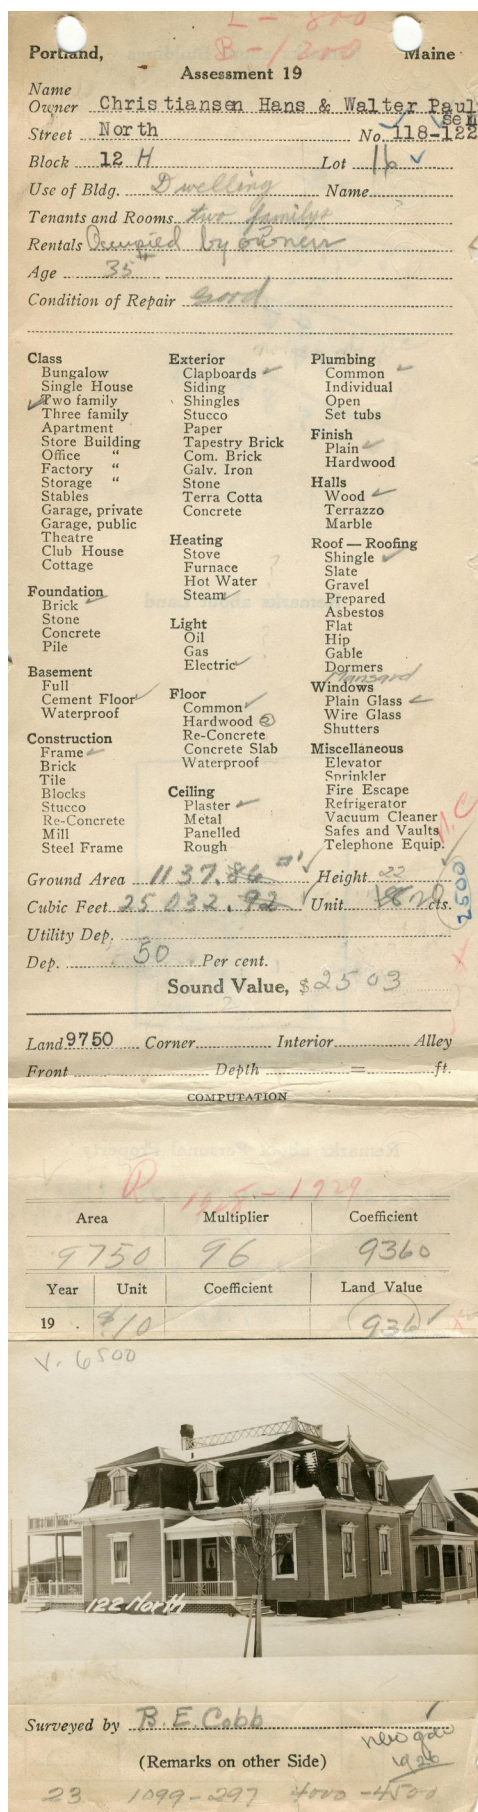 L - 800
B - 1200
Portland, Maine
Assessment 19
Name
Owner Christiansen Hans & Walter Paul
sen
Street North No. 118-122
Block 12 H Lot 16
Use of Bldg. Dwelling Name
Tenants and Rooms two family
Rentals Occupied by owners
Age 35
Condition of Repair Good
Class
Bungalow
Single House
Two family
Three family
Apartment
Store Building
Office "
Factory "
Storage "
Stables
Garage, private
Garage, public
Theatre
Club House
Cottage
Foundation
Brick
Stone
Concrete
Pile
Basement
Full
Cement Floor
Waterproof
Construction
Frame
Brick
Tile
Blocks
Stucco
Re-Concrete
Mill
Steel Frame
Exterior
Clapboards
Siding
Shingles
Stucco
Paper
Tapestry Brick
Com. Brick
Galv. Iron
Stone
Terra Cotta
Concrete
Heating
Stove
Furnace
Hot Water
Steam
Light
Oil
Gas
Electric
Floor
Common
Hardwood 2
Re-Concrete
Concrete Slab
Waterproof
Ceiling
Plaster
Metal
Panelled
Rough
Plumbing
Common
Individual
Open
Set tubs
Finish
Plain
Hardwood
Halls
Wood
Terrazzo
Marble
Roof — Roofing
Shingle
Slate
Gravel
Prepared
Asbestos
Flat
Hip
Gable
Dormers
Mansard
Windows
Plain Glass
Wire Glass
Shutters
Miscellaneous
Elevator
Sprinkler
Fire Escape
Refrigerator
Vacuum Cleaner
Safes and Vaults
Telephone Equip.
N.C
2500
Ground Area 1137.86 □' Height 22
Cubic Feet 25032.92 Unit 18 20 cts.
Utility Dep.
Dep. 50 Per cent.
Sound Value, $2503
Land 9750 Corner Interior Alley
Front Depth = ft.
COMPUTATION
R 1928 - 1929
Area Multiplier Coefficient
9750 96 9360
Year Unit Coefficient Land Value
19 . $/10 936
V. 6500
122 North
Surveyed by B. E. Cobb
(Remarks on other Side)
new gar
1926
23 1099-297 4000-4500